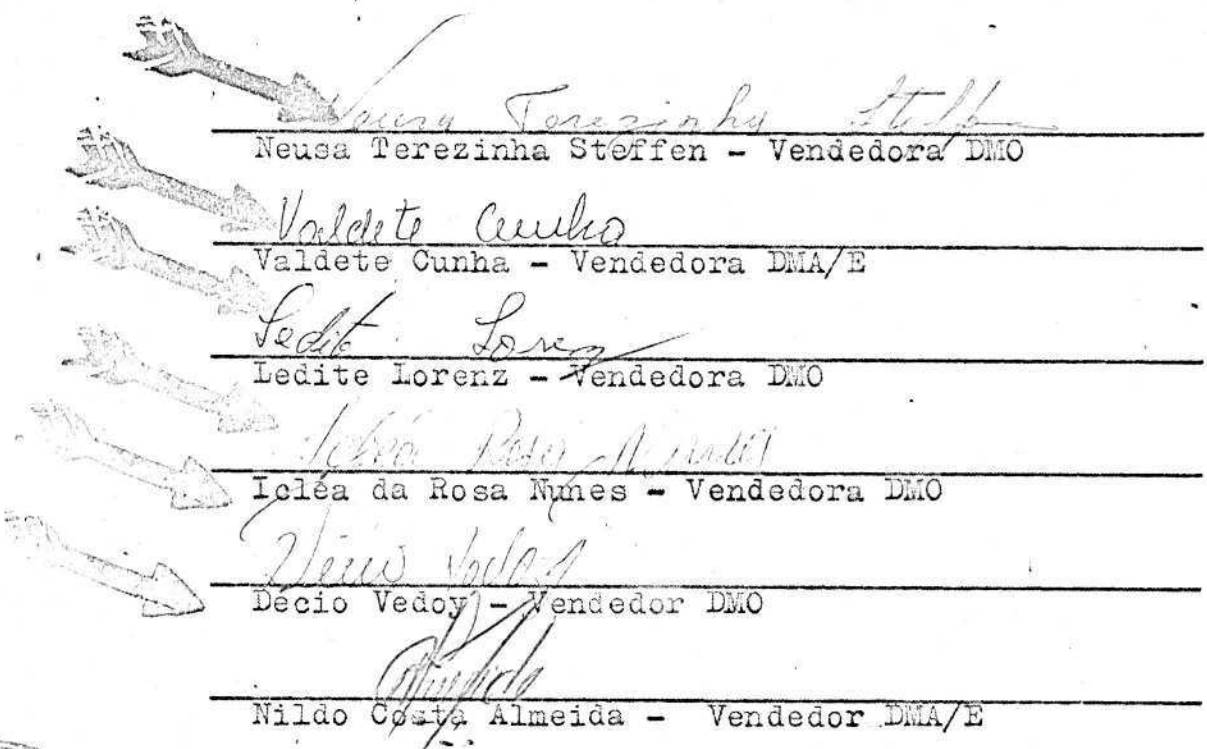 Neusa Terezinha Steffen
Neusa Terezinha Steffen - Vendedora DMO
Valdete Cunha
Valdete Cunha - Vendedora DMA/E
Ledite Lorenz
Ledite Lorenz - Vendedora DMO
Icléa Rosa Nunes
Icléa da Rosa Nunes - Vendedora DMO
Décio Vedoy
Decio Vedoy - Vendedor DMO
Almeida
Nildo Costa Almeida - Vendedor DMA/E